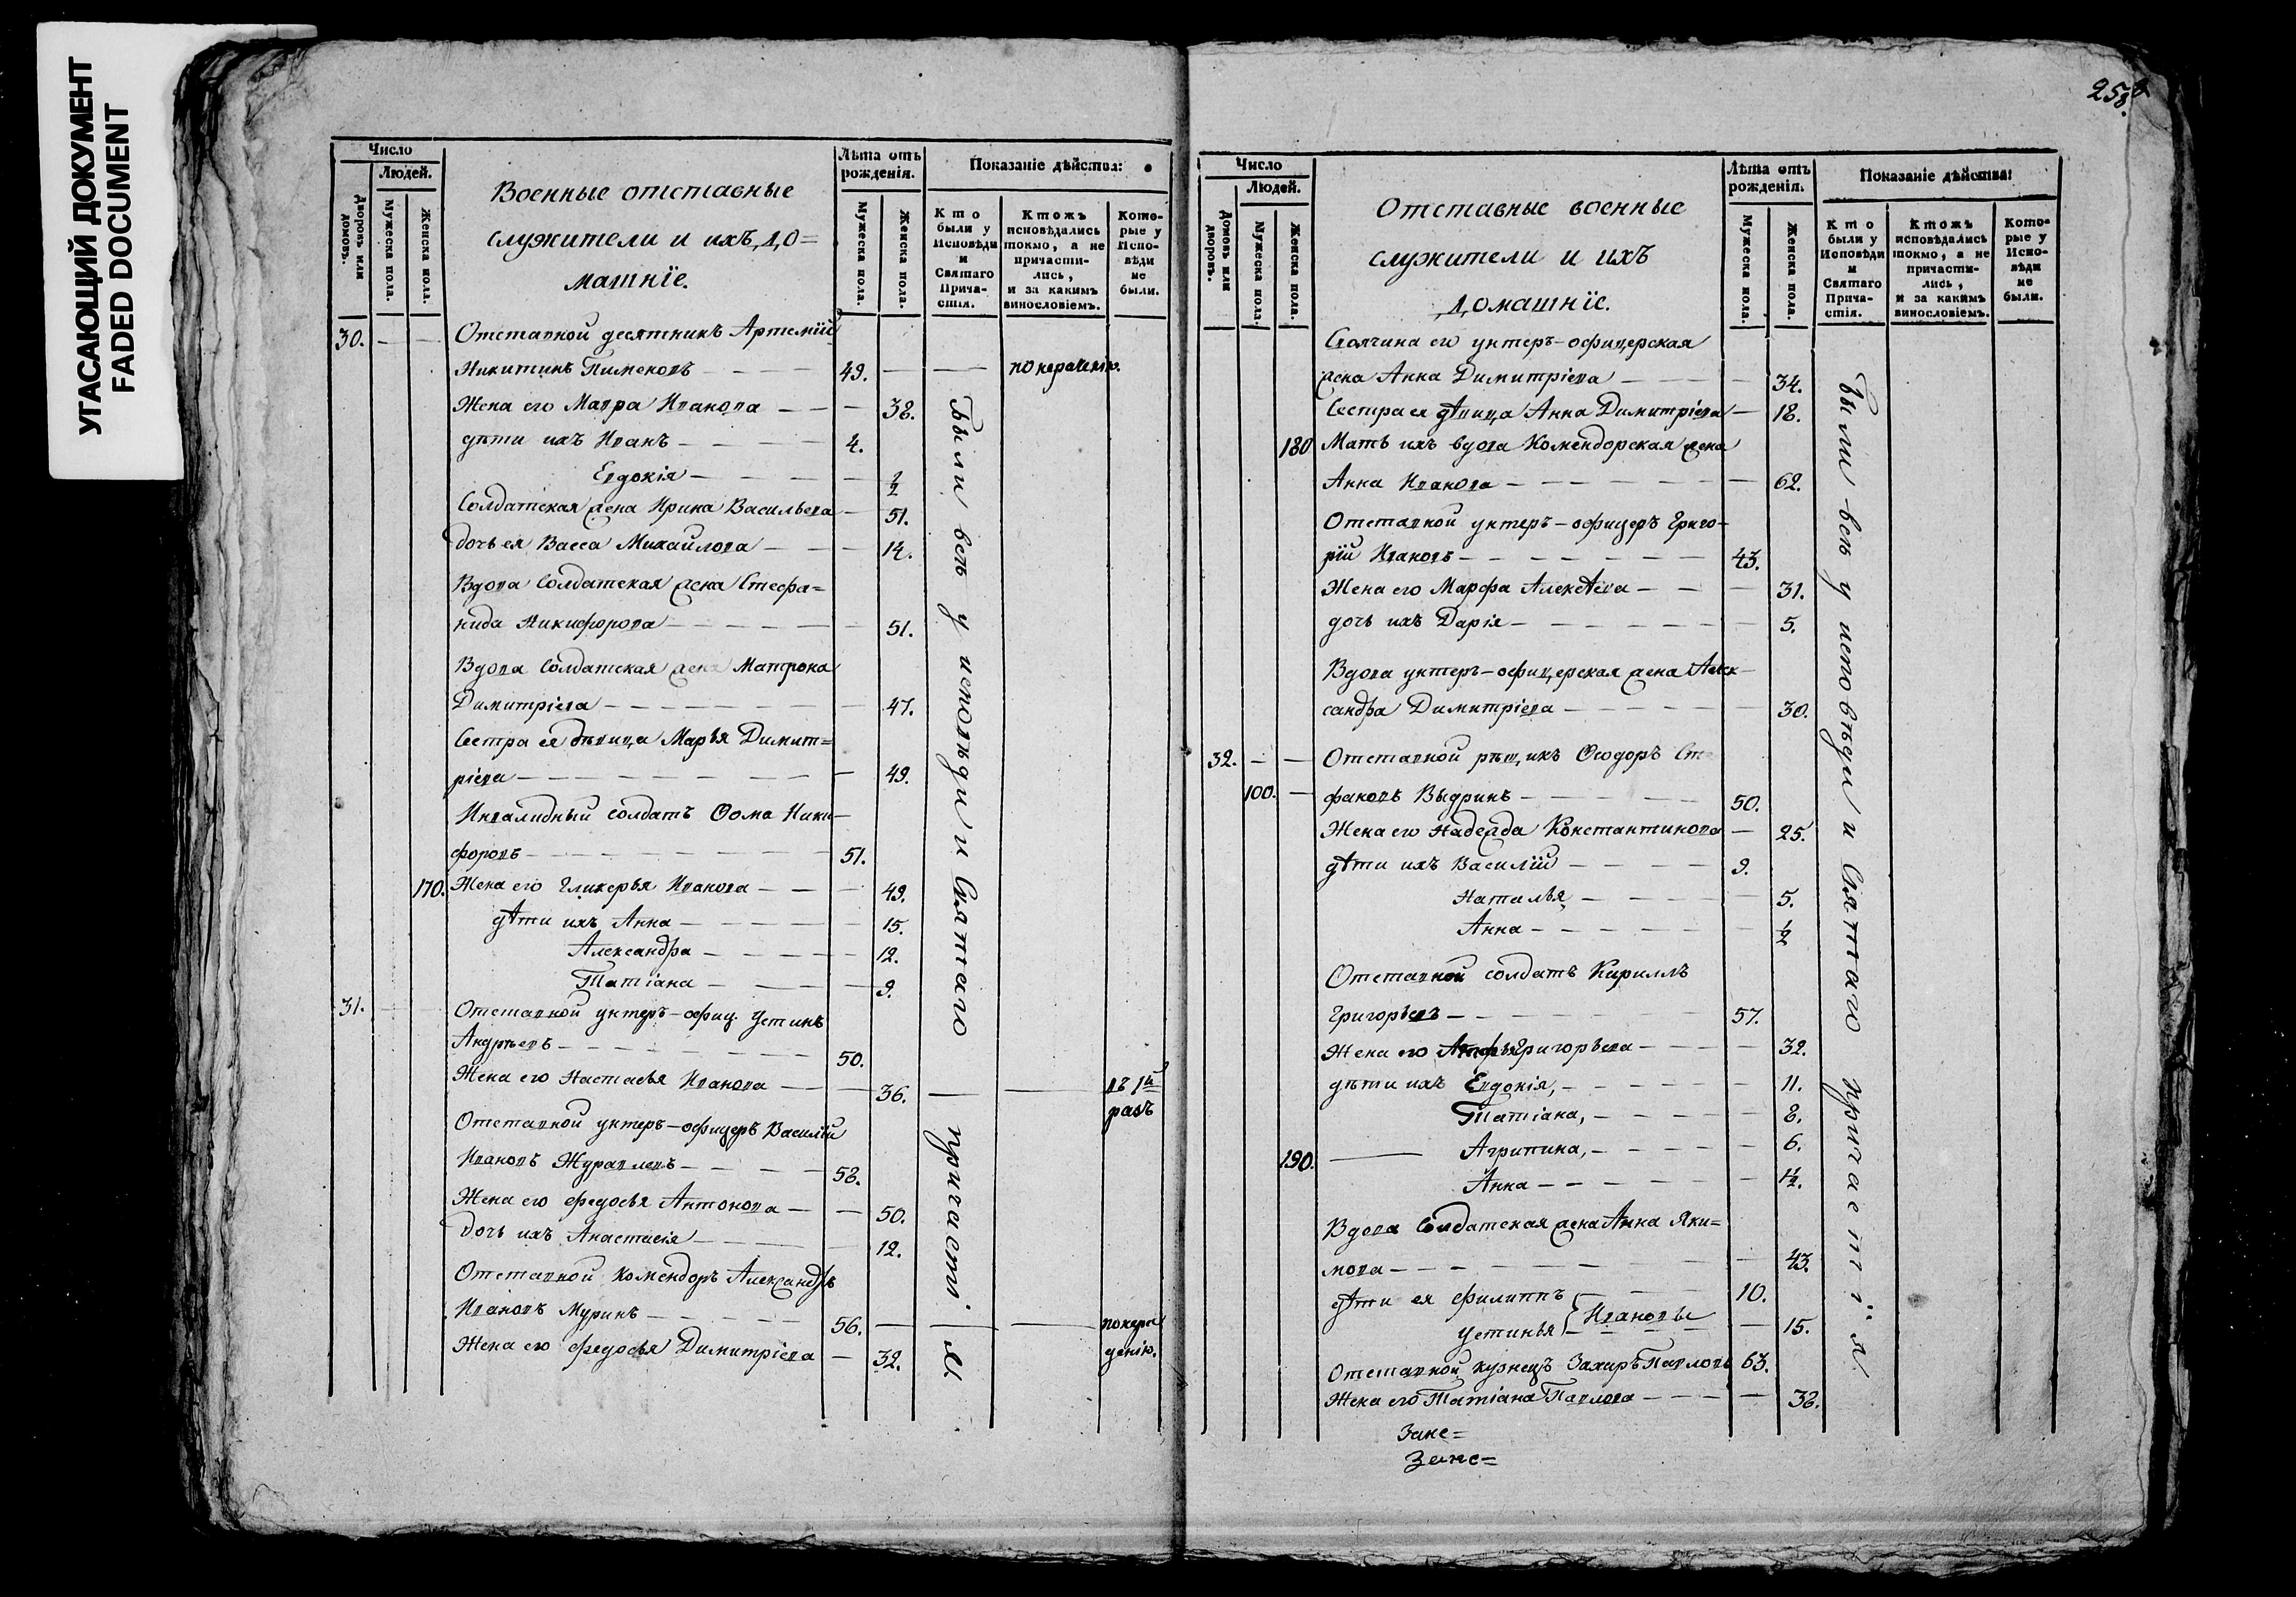 УГАСАЮЩИЙ ДОКУМЕНТ
FADED DOCUMENT
Число
Людей.
Дворовъ или домовъ.
Мужеска пола.
Женска пола.
Военные отставные
служители и ихъ до=
машнїе.
Лѣта отъ рожденія.
Мужеска пола.
Женска пола.
Показаніе дѣйства:
Кто были у Исповѣди и Святаго Прича-стія.
Ктожъ исповѣдались токмо, а не причасти-лись, и за какимъ винословіемъ.
Кото-рые у Испо-вѣди не были.
30. — — Отставной десятникъ Артемїй
Никитинъ Пименовъ — 49. — — по нерачению.
Жена его Мавра Иванова — 38.
дѣти ихъ Иванъ — 4.
Евдокія — 1/2
Солдатская жена Ирина Васильева — 51.
дочь ея Васса Михайлова — 14.
Вдова солдатская жена Стефа=
нида Никифорова — 51.
Вдова солдатская жена Матрона
Димитріева — 47.
Сестра ея дѣвица Марья Димит=
ріева — 49.
Инвалидный солдатъ Ѳома Ники—
форовъ — 51.
170. Жена его Гликерья Иванова — 49.
дѣти ихъ Анна — 15.
Александра — 12.
Татіана — 9.
31. Отставной унтеръ-офиц. Устинъ
Андреевъ — 50.
Жена его Настасья Иванова — 36. — — въ 1й
разъ
Отставной унтеръ-офицеръ Василїй
Ивановъ Журавлевъ — 58.
Жена его Федосья Антонова — 50.
дочь ихъ Анастасія — 12.
Отставной комендоръ Александръ
Ивановъ Муринъ — 56. — — по нера
Жена его Федосья Димитріева — 32. денію.
Были всѣ у исповѣди и Святаго причастія.
258
Число
Людей.
Домовъ или дворовъ.
Мужеска пола.
Женска пола.
Отставные военные
служители и ихъ
домашнїе.
Лѣта отъ рожденія.
Мужеска пола.
Женска пола.
Показаніе дѣйства:
Кто были у Исповѣди и Святаго Прича-стія.
Ктожъ исповѣдались токмо, а не причасти-лись, и за какимъ винословіемъ.
Кото-рые у Испо-вѣди не были.
его унтеръ-офицерская
жена Анна Димитріева — 34.
Сестра ея дѣвица Анна Димитріева — 18.
180 Мать ихъ вдова Комендорская жена
Анна Иванова — 62.
Отставной унтеръ-офицеръ Григо-
рїй Ивановъ — 43.
Жена его Марфа Алексѣева — 31.
дочь ихъ Дарія — 5.
Вдова унтеръ-офицерская жена Алек-
сандра Димитріева — 30.
32. — — Отставной Ѳеодоръ Сте
100. — фановъ Выдринъ — 50.
Жена его Надежда Константинова — 25.
дѣти ихъ Василїй — 9.
Наталья — 5.
Анна — 1/2
Отставной солдатъ Кириллъ
Григорьевъ — 57.
Жена его Григорьева — 32.
дѣти ихъ Евдокія, — 11.
Татіана, — 8.
190. — Агрипина, — 6.
Анна — 1/2.
Вдова солдатская жена Анна Яки=
мова — 43.
дѣти ея Филиппъ — 10.
Устинья } Ивановы — 15.
Отставной кузнецъ Захаръ Павловъ 63.
Жена его Татіана Павлова — 38.
Были всѣ у исповѣди и Святаго причастїя